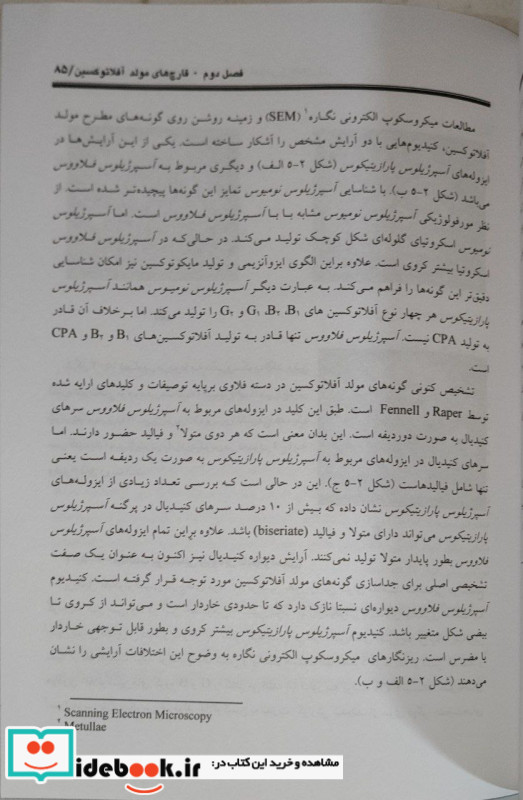 فصل دوم - قارچ‌های مولد آفلاتوکسین/۸۵
مطالعات میکروسکوپ الکترونی نگاره۱ (SEM) و زمینه روشن روی گونه‌های مطرح مولد
آفلاتوکسین، کنیدیوم‌هایی با دو آرایش مشخص را آشکار ساخته است. یکی از این آرایش‌ها در
ایزوله‌های آسپرژیلوس پارازیتیکوس (شکل ۲-۵ الف) و دیگری مربوط به آسپرژیلوس فلاووس
می‌باشد (شکل ۲-۵ ب). با شناسایی آسپرژیلوس نومیوس تمایز این گونه‌ها پیچیده‌تر شده است. از
نظر مورفولوژیکی آسپرژیلوس نومیوس مشابه با با آسپرژیلوس فلاووس است. اما آسپرژیلوس
نومیوس اسکروتیای گلوله‌ای شکل کوچک تولید می‌کند. در حالی‌که در آسپرژیلوس فلاووس
اسکروتیا بیشتر کروی است. علاوه براین الگوی ایزوآنزیمی و تولید مایکوتوکسین نیز امکان شناسایی
دقیق‌تر این گونه‌ها را فراهم می‌کند. به عبارت دیگر آسپرژیلوس نومیوس هماننـد آسپرژیلوس
پارازیتیکوس هر چهار نوع آفلاتوکسین های B۱، B۲، G۱ و G۲ را تولید می‌کند. اما برخلاف آن قادر
به تولید CPA نیست. آسپرژیلوس فلاووس تنها قادر به تولید آفلاتوکسین‌های B۱ و B۲ و CPA
است.
تشخیص کنونی گونه‌های مولد آفلاتوکسین در دسته فلاوی برپایه توصیفات و کلیدهای ارایه شده
توسط Raper و Fennell است. طبق این کلید در ایزوله‌های مربوط به آسپرژیلوس فلاووس سرهای
کنیدیال به صورت دوردیفه است. این بدان معنی است که هر دوی متولا۲ و فیالید حضور دارند. اما
سرهای کنیدیال در ایزوله‌های مربوط به آسپرژیلوس پارازیتیکوس به صورت یک ردیفه است یعنی
تنها شامل فیالیدهاست (شکل ۲-۵ ج). این در حالی است کـه بررسی تعداد زیادی از ایزولـه‌های
آسپرژیلوس پارازیتیکوس نشان داده که بیش از ۱۰ درصد سرهای کنیدیال در پرگنه آسپرژیلوس
پارازیتیکوس می‌تواند دارای متولا و فیالید (biseriate) باشد. علاوه براین تمام ایزوله‌های آسپرژیلوس
فلاووس بطور پایدار متولا تولید نمی‌کنند. آرایش دیواره کنیدیال نیـز اکنون به عنوان یـک صـفت
تشخیصی اصلی برای جداسازی گونه‌های مولد آفلاتوکسین مورد توجه قرار گرفته است. کنیدیوم
آسپرژیلوس فلاووس دیواره‌ای نسبتا نازک دارد که تا حدودی خاردار است و می‌تواند از کروی تا
بیضی شکل متغییر باشد. کنیدیوم آسپرژیلوس پارازیتیکوس بیشتر کروی و بطور قابل توجهی خاردار
یا مضرس است. ریزنگارهای میکروسکوپ الکترونی نگاره به وضوح این اختلافات آرایشی را نشان
می‌دهند (شکل ۲-۵ الف و ب).
۱ Scanning Electron Microscopy
۲ Metullae
مشاهده و خرید این کتاب در:
idebook.ir